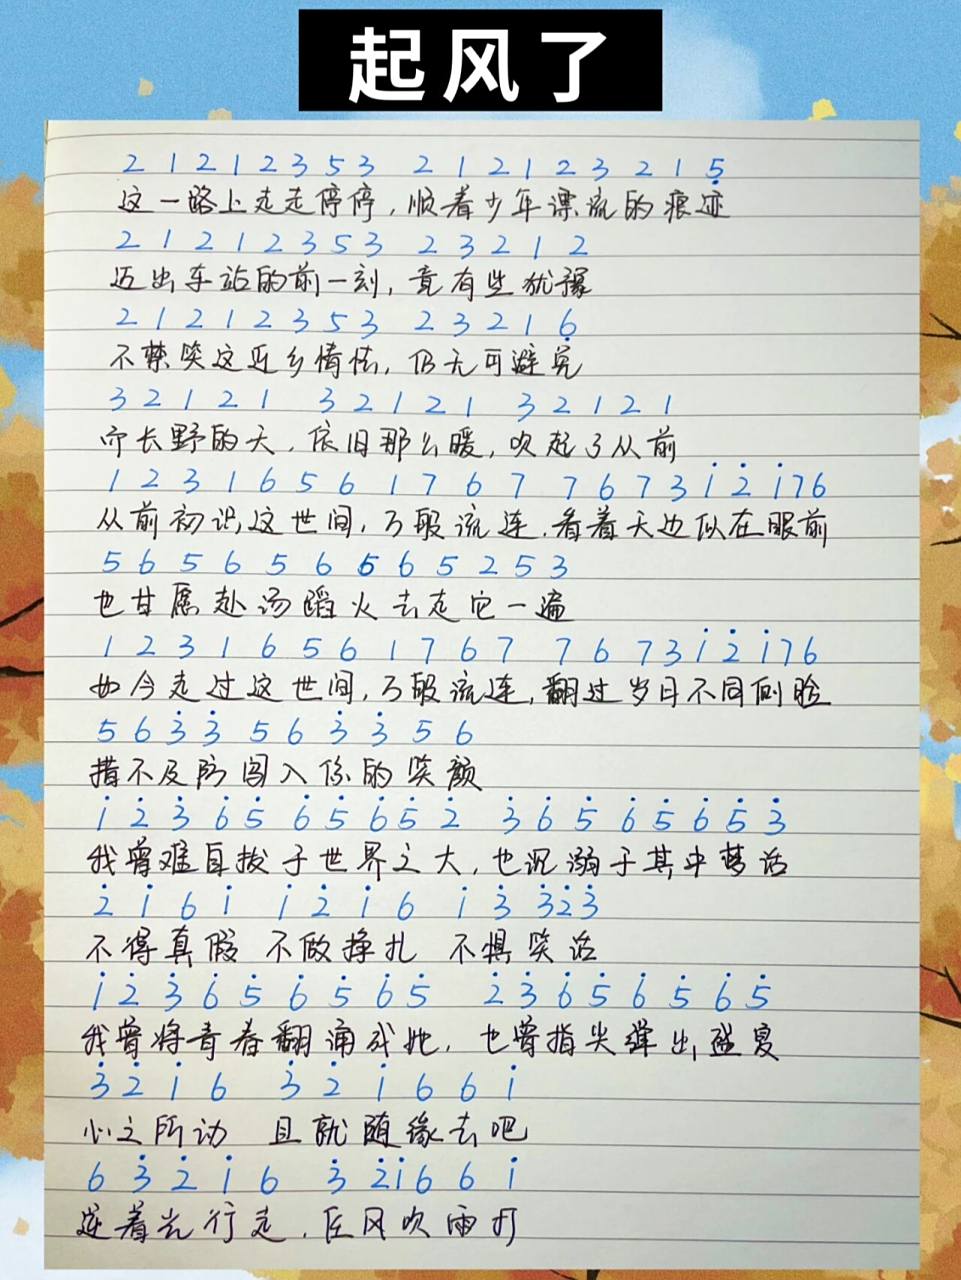 起风了
2 1 2 1 2 3 5 3 2 1 2 1 2 3 2 1 5̣
这一路上走走停停,顺着少年漂流的痕迹
2 1 2 1 2 3 5 3 2 3 2 1 2
迈出车站的前一刻,竟有些犹豫
2 1 2 1 2 3 5 3 2 3 2 1 6̣
不禁笑这近乡情怯,仍无可避免
3 2 1 2 1 3 2 1 2 1 3 2 1 2 1
而长野的天,依旧那么暖,吹起了从前
1 2 3 1 6 5 6 1 7 6 7 7 6 7 3 1̇ 2̇ 1̇76
从前初识这世间,万般流连,看着天边似在眼前
5 6 5 6 5 6 5 6 5 2 5 3
也甘愿赴汤蹈火去走它一遍
1 2 3 1 6 5 6 1 7 6 7 7 6 7 3 1̇ 2̇ 1̇76
如今走过这世间,万般流连,翻过岁月不同侧脸
5 6 3̇ 3̇ 5 6 3̇ 3̇ 5 6
措不及防闯入你的笑颜
1̇ 2̇ 3̇ 6̇ 5̇ 6̇ 5̇ 6̇ 5̇ 2̇ 3̇ 6̇ 5̇ 6̇ 5̇ 6̇ 5̇ 3̇
我曾难自拔于世界之大,也沉溺于其中梦话
2̇ 1̇ 6 1̇ 1̇ 2̇ 1̇ 6 1̇ 3̇ 3̇2̇3̇
不得真假 不做挣扎 不惧笑话
1̇ 2̇ 3̇ 6̇ 5̇ 6̇ 5̇ 6̇ 5̇ 2̇ 3̇ 6̇ 5̇ 6̇ 5̇ 6̇ 5̇
我曾将青春翻涌成她,也曾指尖弹出盛夏
3̇ 2̇ 1̇ 6 3̇ 2̇ 1̇ 6 6 1̇
心之所动 且就随缘去吧
6 3̇ 2̇ 1̇ 6 3̇ 2̇1̇6 6 1̇
逆着光行走,任风吹雨打